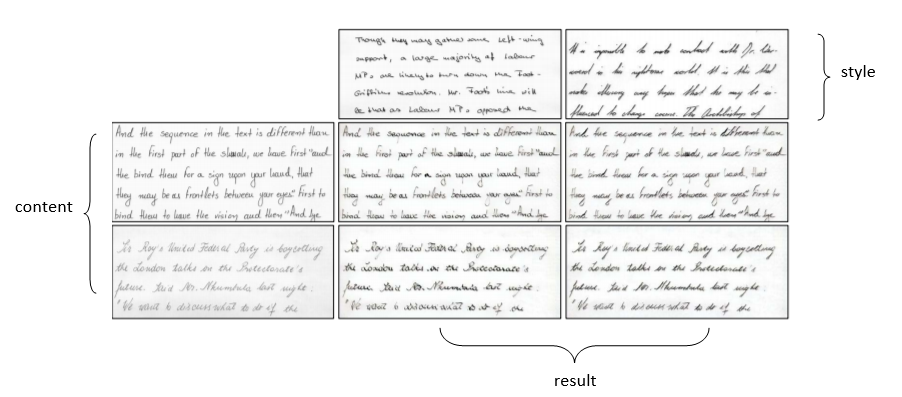 Though they may gather some Left-wing
support, a large majority of Labour
MPs are likely to turn down the Foot-
Griffiths resolution. Mr. Foot's line will
be that as Labour MPs opposed the
It is impossible to make contact with Dr.
world. It is this that
make many hope that he may be in-
fluenced to change course. The Archbishop of
style
content
And the sequence in the text is different than
in the first part of the we have First "and
the bind them for a sign upon your hand, that
they may be as frontlets between your eyes" First to
bind them to leave the vision and then "And
And the sequence in the text is different than
in the first part of the we have First "and
the bind them for a sign upon your hand, that
they may be as frontlets between your eyes" First to
bind them to leave the vision and then "And
And the sequence in the text is different than
in the first part of the we have First "and
the bind them for a sign upon your hand, that
they may be as frontlets between your eyes" First to
bind them to leave the vision and then "And
Sir Roy's United Federal Party is boycotting
the London talks on the Protectorate's
future. Said Mr. Nkumbula last night:
"We want to discuss what to do if the
Sir Roy's United Federal Party is boycotting
the London talks on the Protectorate's
future. Said Mr. Nkumbula last night:
"We want to discuss what to do if the
Sir Roy's United Federal Party is boycotting
the London talks on the Protectorate's
future. Said Mr. Nkumbula last night:
"We want to discuss what to do if the
result